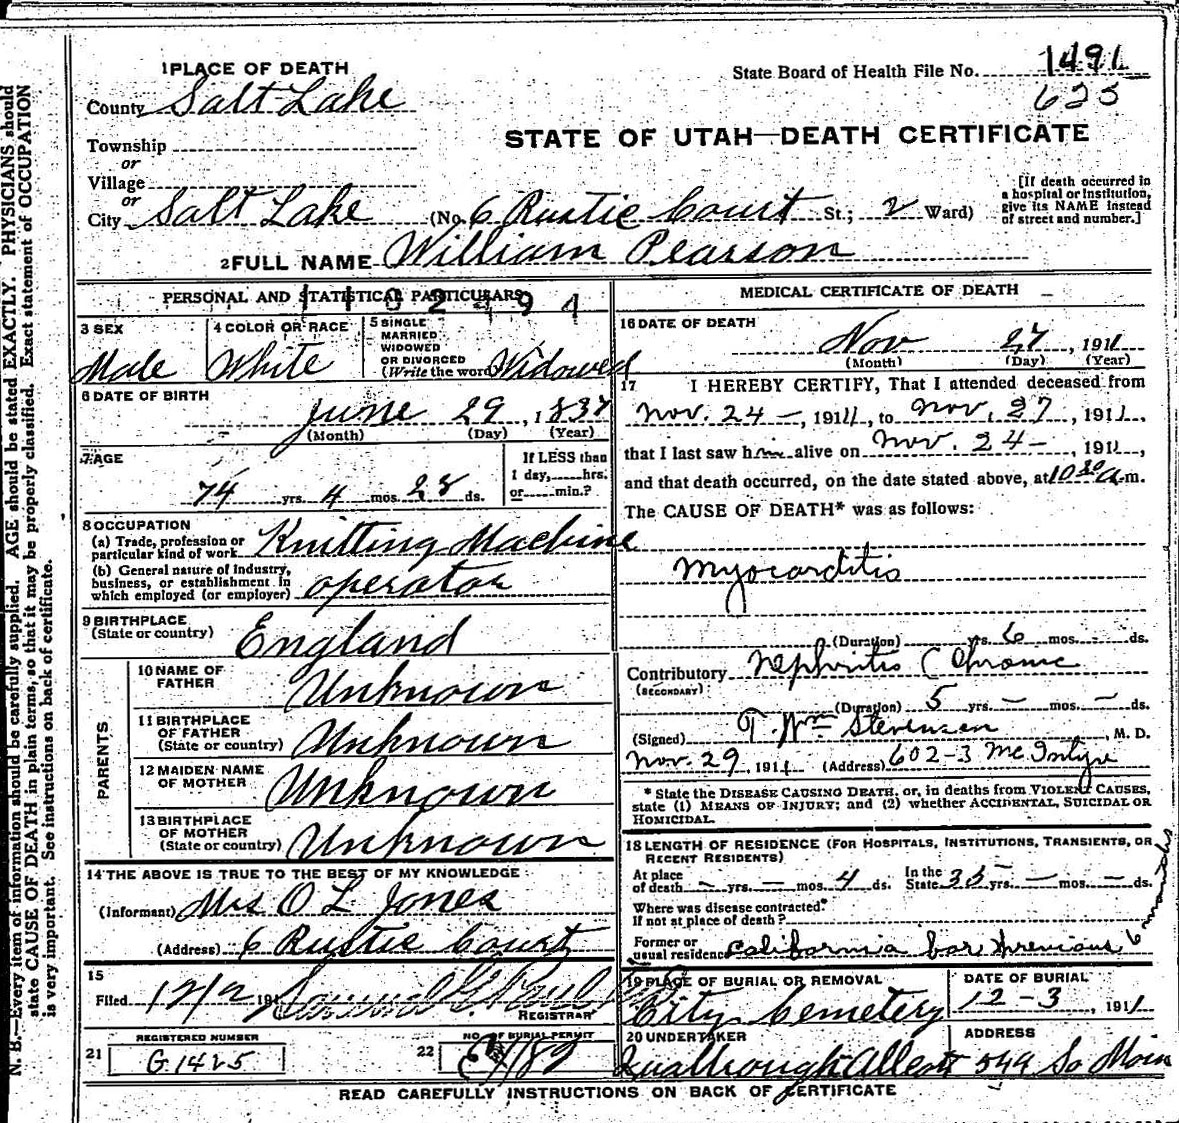 N. B.—Every item of information should be carefully supplied. AGE should be stated EXACTLY. PHYSICIANS should
state CAUSE OF DEATH in plain terms, so that it may be properly classified. Exact statement of OCCUPATION
is very important. See instructions on back of certificate.
1 PLACE OF DEATH
State Board of Health File No. 1491
625
County Salt Lake
STATE OF UTAH—DEATH CERTIFICATE
Township
or
Village
or
City Salt Lake (No. 6 Rustic Court St.; 2 Ward)
[If death occurred in
a hospital or institution,
give its NAME instead
of street and number.]
2 FULL NAME William Pearson
PERSONAL AND STATISTICAL PARTICULARS
3 SEX Male
4 COLOR OR RACE White
5 SINGLE
MARRIED
WIDOWED
OR DIVORCED
(Write the word) Widowed
6 DATE OF BIRTH
June 29, 1837
(Month) (Day) (Year)
7 AGE
74 yrs. 4 mos. 28 ds.
If LESS than
1 day, hrs.
or min.?
8 OCCUPATION
(a) Trade, profession or
particular kind of work Knitting Machine
(b) General nature of industry,
business, or establishment in
which employed (or employer) operator
9 BIRTHPLACE
(State or country) England
PARENTS
10 NAME OF
FATHER Unknown
11 BIRTHPLACE
OF FATHER
(State or country) Unknown
12 MAIDEN NAME
OF MOTHER Unknown
13 BIRTHPLACE
OF MOTHER
(State or country) Unknown
14 THE ABOVE IS TRUE TO THE BEST OF MY KNOWLEDGE
(Informant) Mrs O L Jones
(Address) 6 Rustic Court
15
Filed 12/2 191
REGISTRAR
REGISTERED NUMBER
21 G1425
NO. OF BURIAL PERMIT
22
MEDICAL CERTIFICATE OF DEATH
16 DATE OF DEATH
Nov 27, 1911
(Month) (Day) (Year)
17 I HEREBY CERTIFY, That I attended deceased from
Nov. 24—, 1911, to Nov. 27, 1911,
that I last saw him alive on Nov. 24—, 1911,
and that death occurred, on the date stated above, at 10 30 a.m.
The CAUSE OF DEATH* was as follows:
Myocarditis
(Duration) yrs. 6 mos. - ds.
Contributory Nephritis (Chronic
(SECONDARY)
(Duration) 5 yrs. — mos. — ds.
(Signed) T. Wm Stevenson, M. D.
Nov. 29, 1911 (Address) 602-3 McIntyre
* State the DISEASE CAUSING DEATH, or, in deaths from VIOLENT CAUSES,
state (1) MEANS OF INJURY; and (2) whether ACCIDENTAL, SUICIDAL OR
HOMICIDAL.
18 LENGTH OF RESIDENCE (FOR HOSPITALS, INSTITUTIONS, TRANSIENTS, OR
RECENT RESIDENTS)
At place
of death — yrs. — mos. 4 ds.
In the
State 35 yrs. — mos. — ds.
Where was disease contracted?
If not at place of death?
Former or
usual residence California for previous 6 months
19 PLACE OF BURIAL OR REMOVAL
City Cemetery
DATE OF BURIAL
12-3, 1911
20 UNDERTAKER
ADDRESS
549 So Main
READ CAREFULLY INSTRUCTIONS ON BACK OF CERTIFICATE